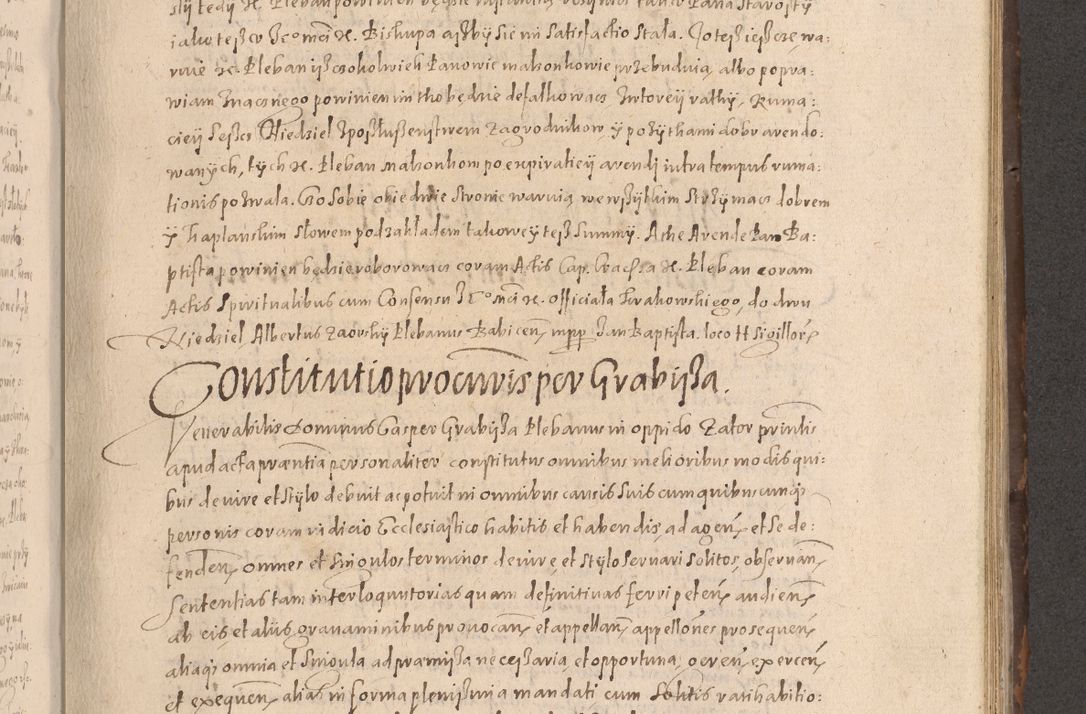 iako też co Jego mći etc. Biskupa ażby się im satisfactio stała. Jo też ieszcze wa:
ruie etc. Pleban iż czokolwiek Panowie małżonkowie przebuduią, albo popra:
wiam Inacznego powinien im tho będzie defalkowacz Jntorey rathy. Ruma:
ciey sescz Niedziel zposłuszenstwem zagrodnikow y pożythami dobr arendo:
wanych, tych etc. Pleban małżonkom po expiratiey arendi intra tempus ruma
tionis pozwala. Czo sobie obie dwie stronie waruią we wszytkim strzymacz dobrem
y kaplanskim słowem pod zakładem takowey też summy. A the Arende Pan Ba:
ptista powinien będzie roborowacz coram Actis Cap. etc. Pleban coram
Actis Spiritualibus cum Consensu Jego mći etc. officiała krakowskiego, do dwu
Niedziel Albertus Zaorsky Plebanus Babicen. mpp Jan Baptista. loco H sigillor.
Constitutio procuris per Grabissa.
Venerabilis dominus Gasper Grabissa Plebanus in oppido Zator printis
apud acta præntia personaliter constitutus omnibus melioribus modis qui:
bus de iure et stylo debuit ac potuit in omnibus causis suis cum quibuscunqz
personis coram iudicio Ecclesiastico habitis et habendis, ad agen. et se de:
fenden. omnes et singulos terminos de iure, et stylo servari solitos, observan.
Sententias tam interloquutorias quam definitivas ferri peten. audien.
ab eis, et aliis gravaminibus provocan. et appellan. appellones prosequen.
aliaqz omnia et singula ad præmissa necessaria, et opportuna, geren. exercen.
et exequen. alias in forma plenissima mandati cum solitis ratihabitio: